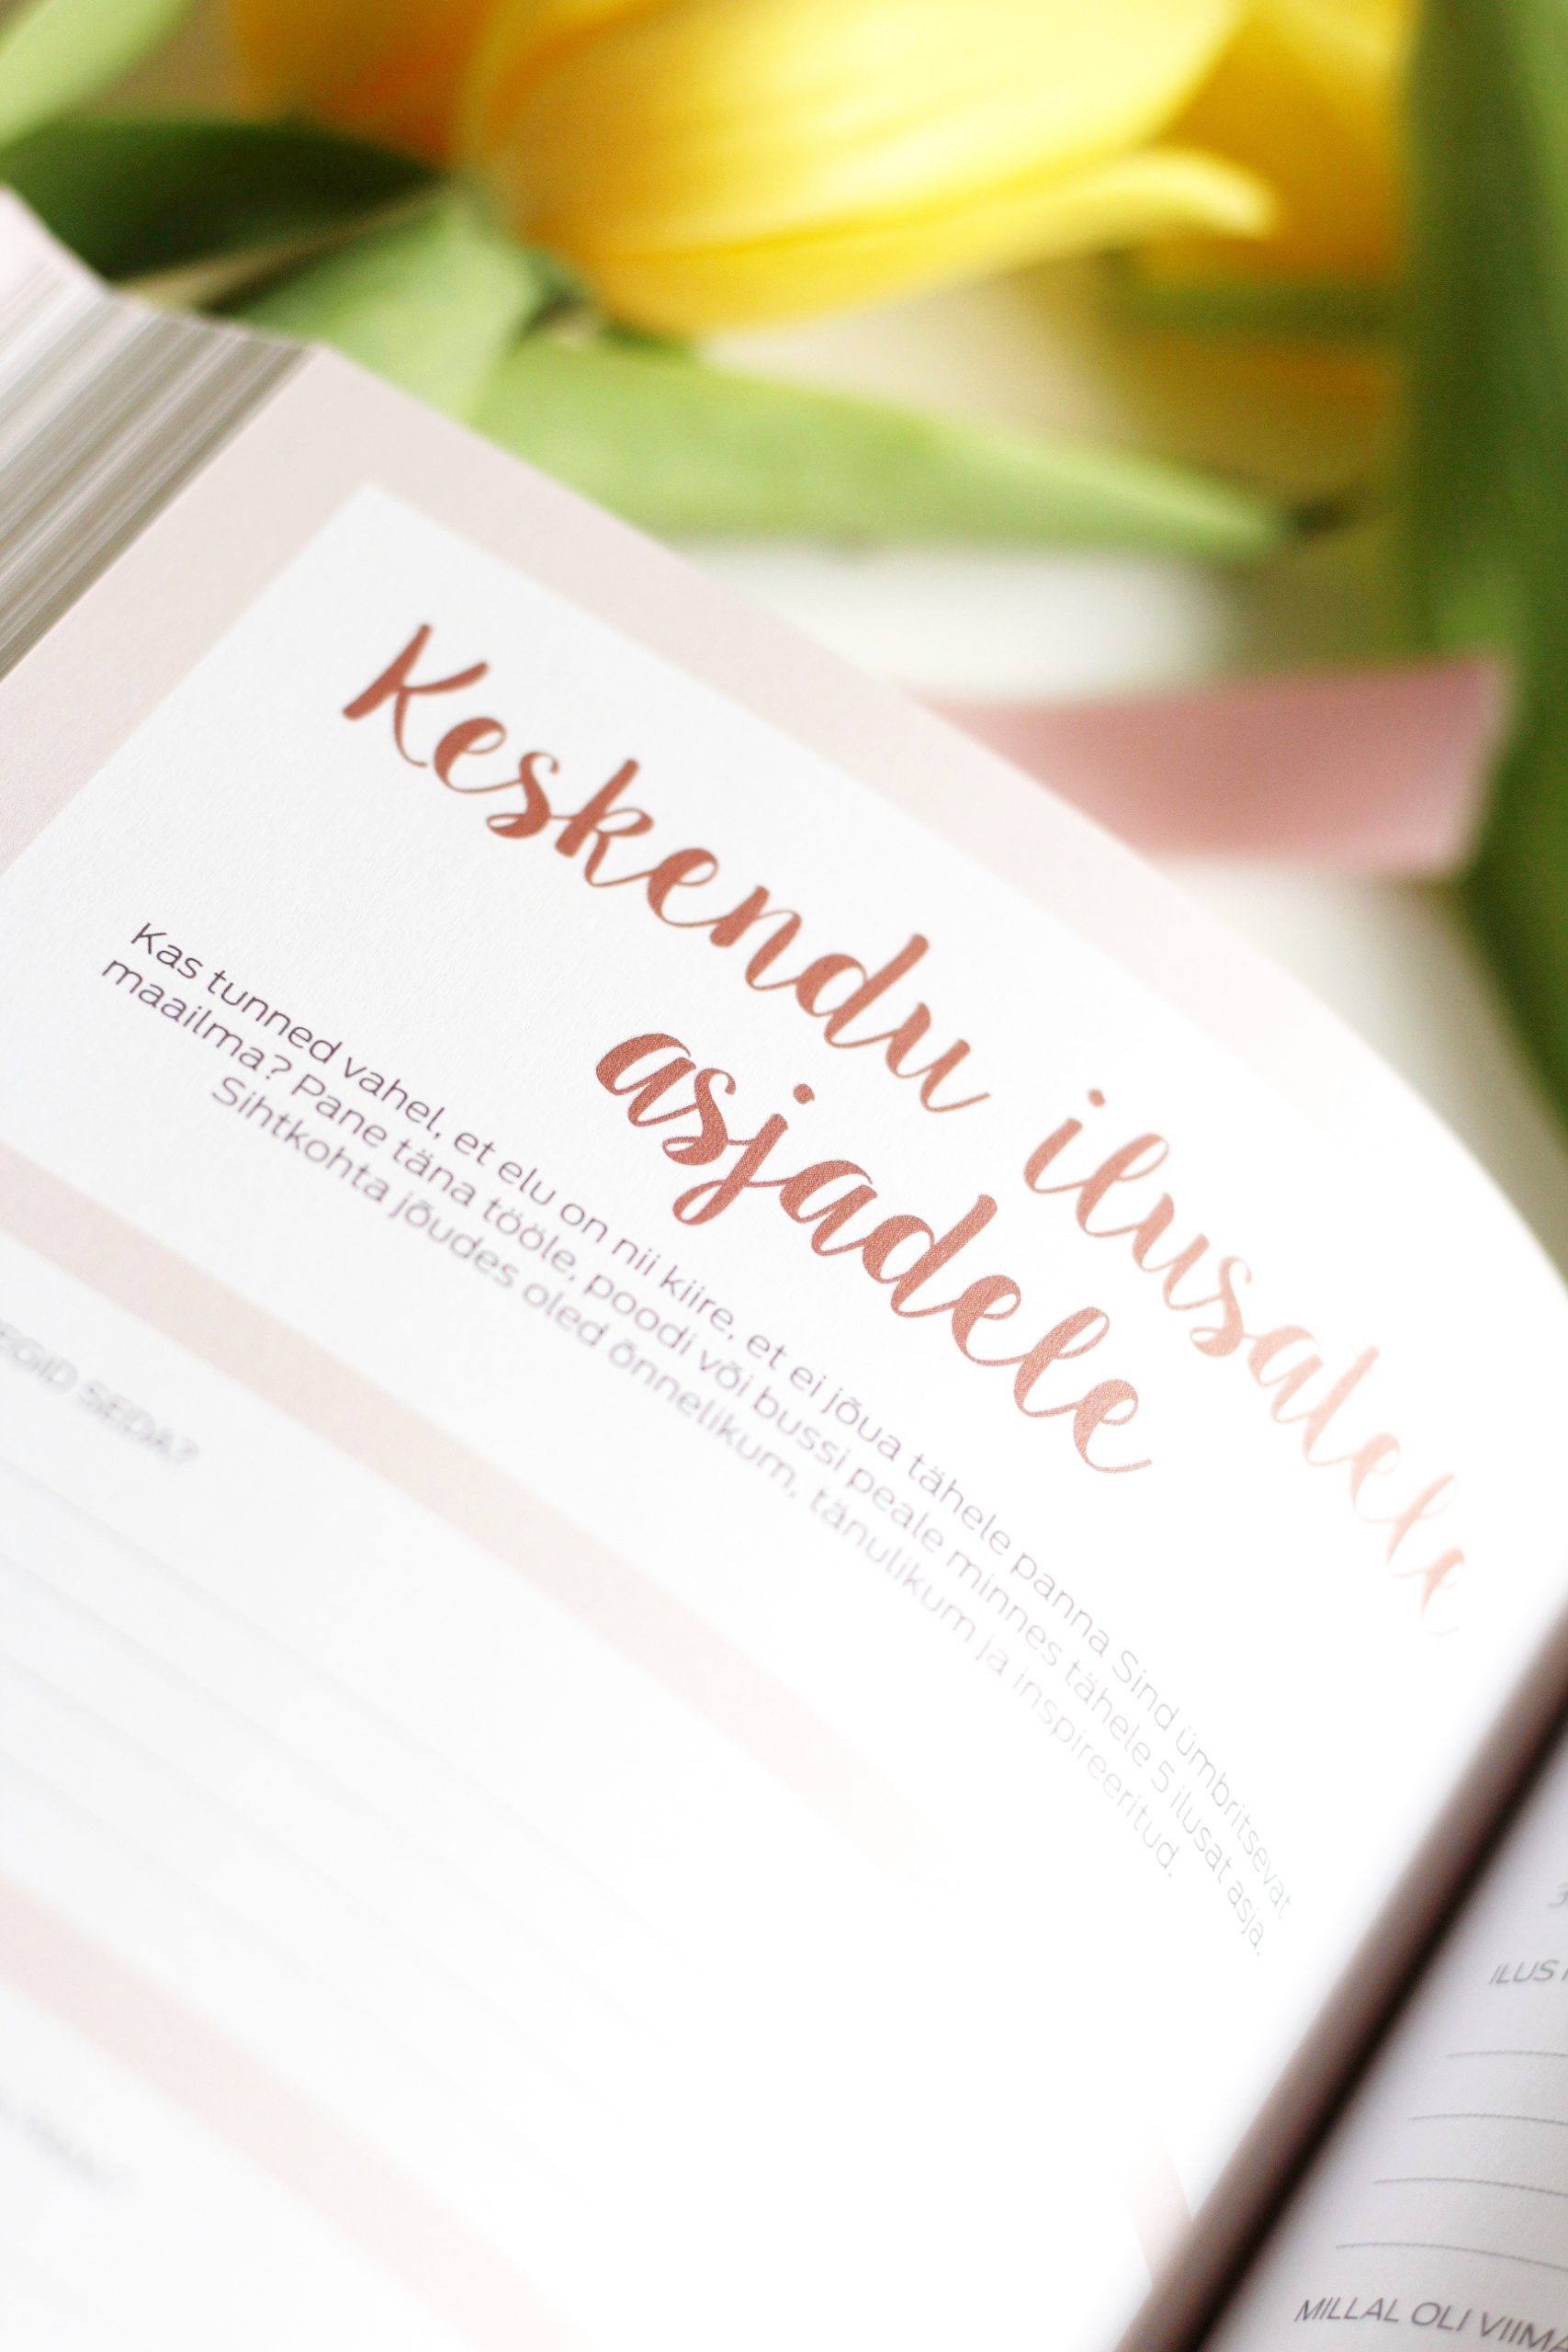 Keskendu ilusatele
asjadele
Kas tunned vahel, et elu on nii kiire, et ei jõua tähele panna Sind ümbritsevat
maailma? Pane täna tööle, poodi või bussi peale minnes tähele 5 ilusat asja.
Sihtkohta jõudes oled õnnelikum, tänulikum ja inspireeritud.
SEDA?
MILLAL OLI